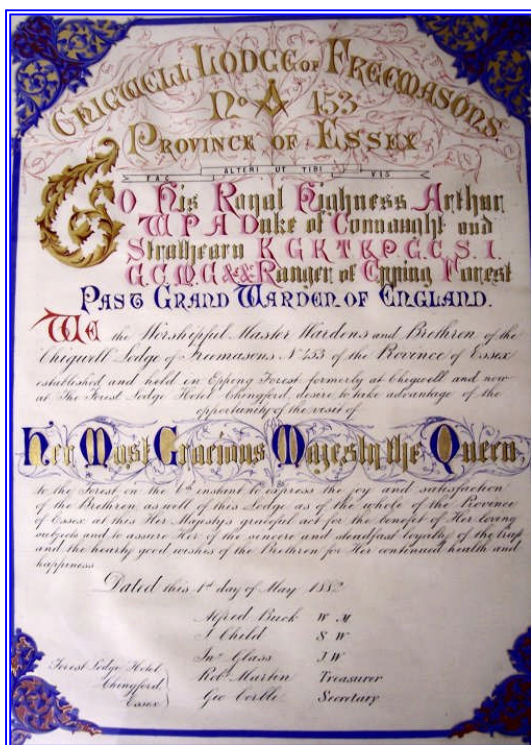 CHIGWELL LODGE OF FREEMASONS.
No 453
PROVINCE OF ESSEX
FAC ALTERI UT TIBI VIS
To His Royal Highness Arthur
W P A Duke of Connaught and
Strathearn K G K T K P G.C.S.I.
G.C.M.G && Ranger of Epping Forest
PAST GRAND WARDEN OF ENGLAND.
WE the Worshipful Master Wardens and Brethren of the
Chigwell Lodge of Freemasons No 453 of the Province of Essex
established and held in Epping Forest formerly at Chigwell and now
at The Forest Lodge Hotel Chingford, desire to take advantage of the
opportunity of the visit of
Her Most Gracious Majesty the Queen,
to the Forest on the 6th instant to express the joy and satisfaction
of the Brethren as well of this Lodge as of the whole of the Province
of Essex at this Her Majestys graceful act for the benefit of Her loving
subjects and to assure Her of the sincere and steadfast loyalty of the Craft
and the hearty good wishes of the Brethren for Her continued health and
happiness
Dated this 1st day of May 1882
Alfred Buck W M
J Child S W
Jno Glass J W
Robt Martin Treasurer
Geo Corble Secretary
Forest Lodge Hotel
Chingford
Essex